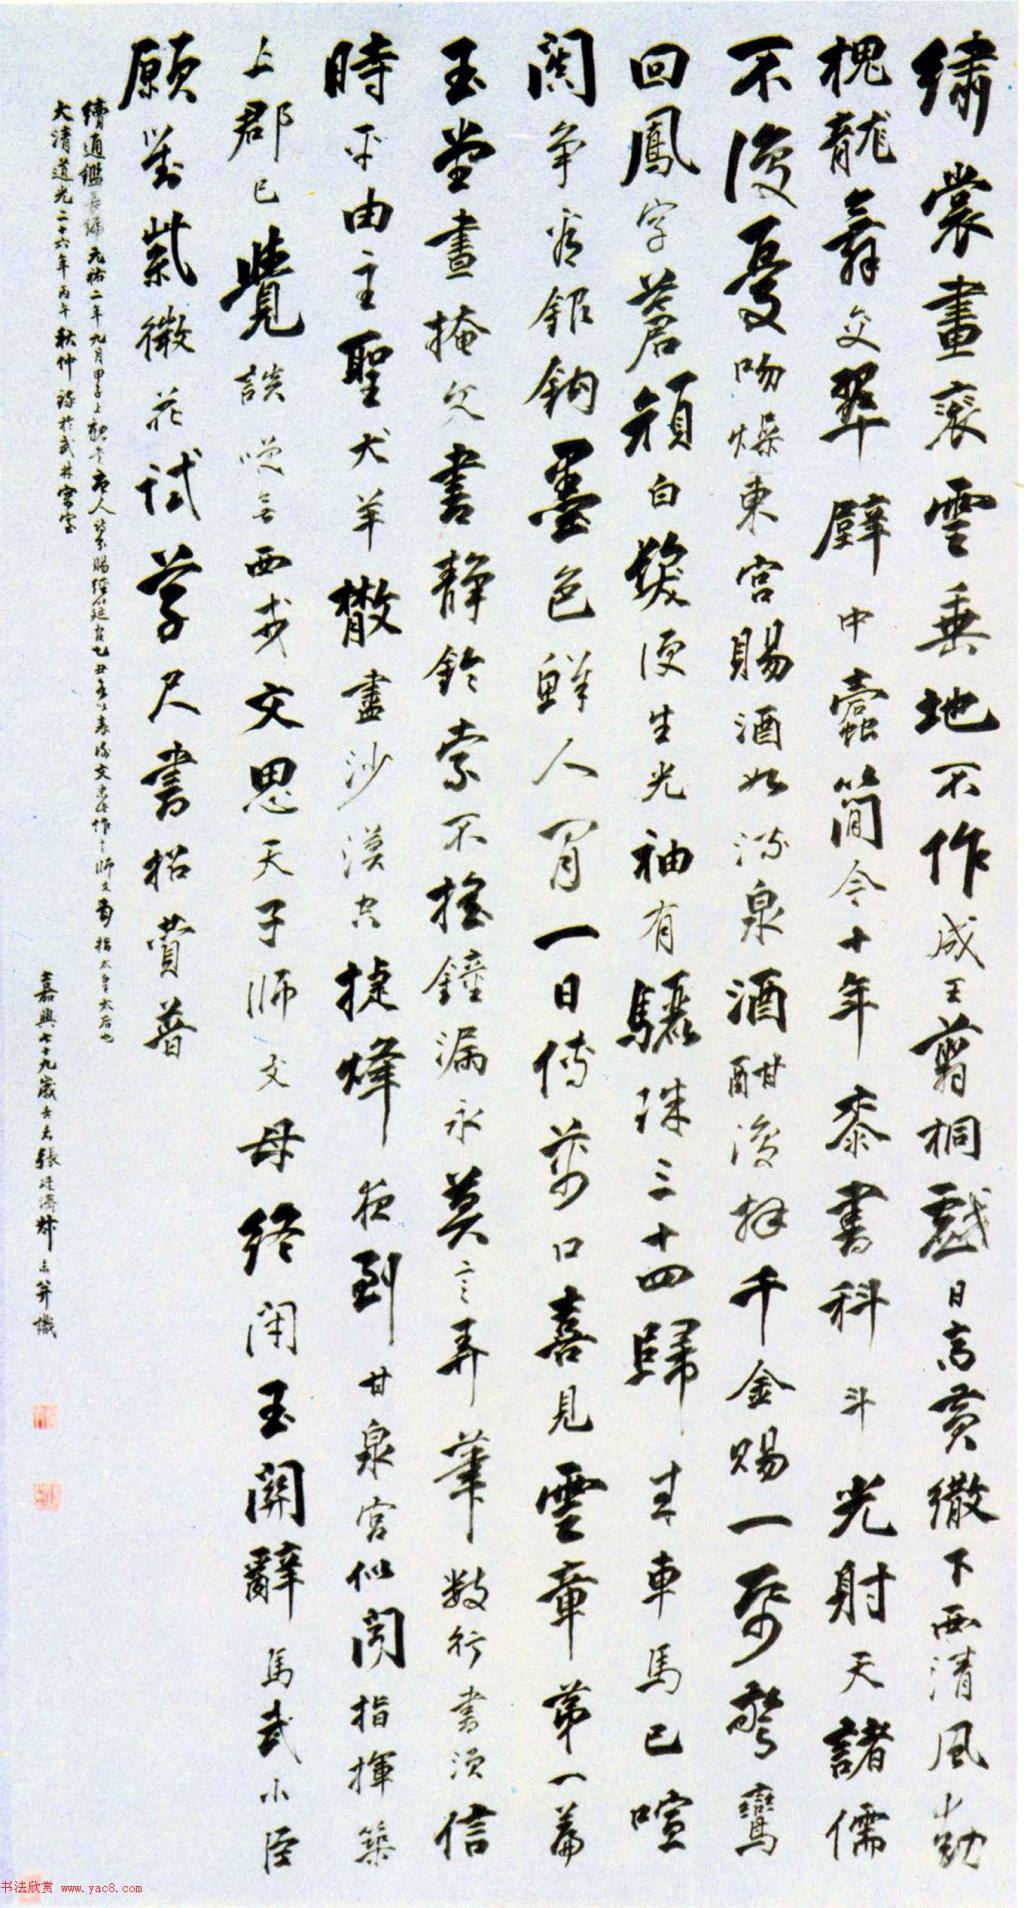 繡裳畫袞雲垂地不作成王翦桐戲日高黃繖下西清風動
槐龍舞交翠壁中蠹簡今千年桼書科斗光射天諸儒
不復憂吻燥東宮賜酒如流泉酒酣復拜千金賜一紙驚鸞
回鳳字蒼顏白髮便生光袖有驪珠三十四歸來車馬已喧
闐爭看銀鉤墨色鮮人間一日傳萬口喜見雲章第一篇
玉堂晝掩文書靜鈴索不搖鐘漏永莫言弄筆數行書須信
時平由主聖犬羊散盡沙漠空捷烽夜到甘泉宮似聞指揮築
上郡已覺談笑無西戎文思天子師文母終閉玉關辭馬武小臣
願對紫薇花試草尺書招贊普
續通鑑長編元祐二年九月甲子上親書唐人詩分賜經筵官
大清道光二十六年丙午秋仲
嘉興七十九歲
书法欣赏 www.yac8.com